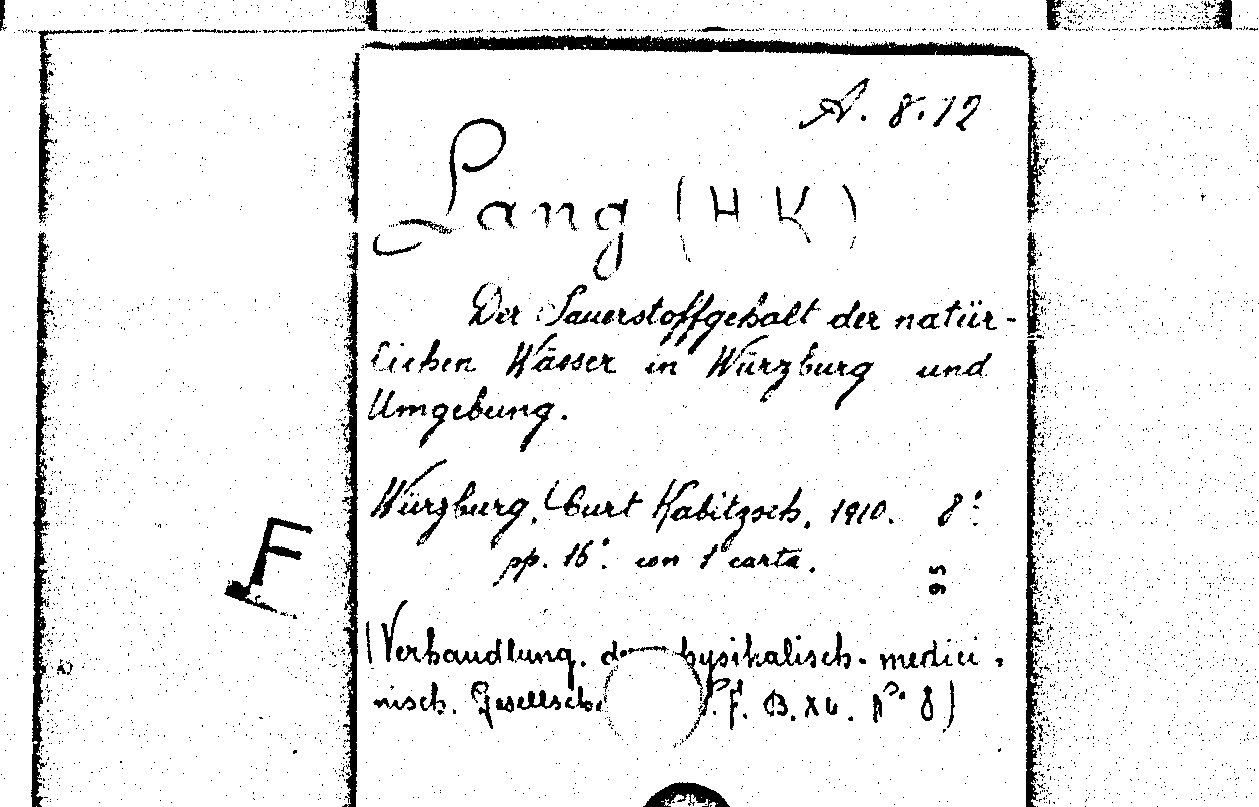 A. 8.12
Lang (H K)
Der Sauerstoffgehalt der natür-
lichen Wässer in Würzburg und
Umgebung.
Würzburg, Curt Kabitzsch, 1910. 8º
F
pp. 16. con 1 carta.
95
(Verhandlung. physikalisch-medici-
nisch. Gesellsch. F. B. XL. Nº. 8)